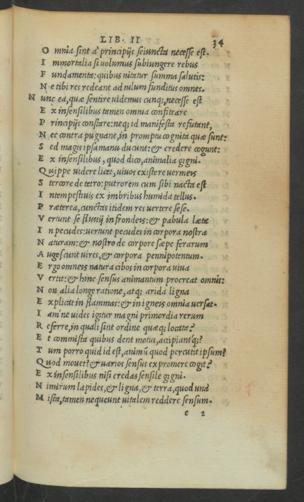 LIB. II
34
Omnia sint à principijs seiuncta necesse est.
Immortalia si uolumus subiungere rebus
Fundamenta: quibus nitatur summa salutis:
Ne tibi res redeant ad nilum funditus omnes.
Nunc ea, quæ sentire uidemus cunq;, necesse est
Ex insensilibus tamen omnia confiteare
Principijs constare: neq; id manifesta refutant,
Nec contra pugnant, in promptu cognita quæ sunt:
Sed magis ipsa manu ducunt: & credere cogunt:
Ex insensilibus, quod dico, animalia gigni.
Quippe uidere licet, uiuos existere uermeis
Stercore de tetro: putrorem cum sibi nacta est
Intempestiuis ex imbribus humida tellus.
Præterea, cunctas itidem res uertere sese.
Vertunt se fluuij in frondeis: & pabula læta
In pecudes: uertunt pecudes in corpora nostra
Naturam: & nostro de corpore sæpe ferarum
Augescunt uires, & corpora pennipotentum.
Ergo omneis natura cibos in corpora uiua
Vertit: & hinc sensus animantum procreat omnis:
Non alia longe ratione, atq; arida ligna
Explicat in flammas: & in igneis omnia uersat.
Iam ne uides igitur magni primordia rerum
Referre, in quali sint ordine quæq; locata?
Et commista quibus dent motus, accipiantq;?
Tum porro quid id est, animū quod percutit ipsum?
Quod mouet? & uarios sensus expromere cogit?
Ex insensilibus nisi credas sensile gigni.
Nimirum lapides, & ligna, & terra, quod una
Mista, tamen nequeunt uitalem reddere sensum.
e 2